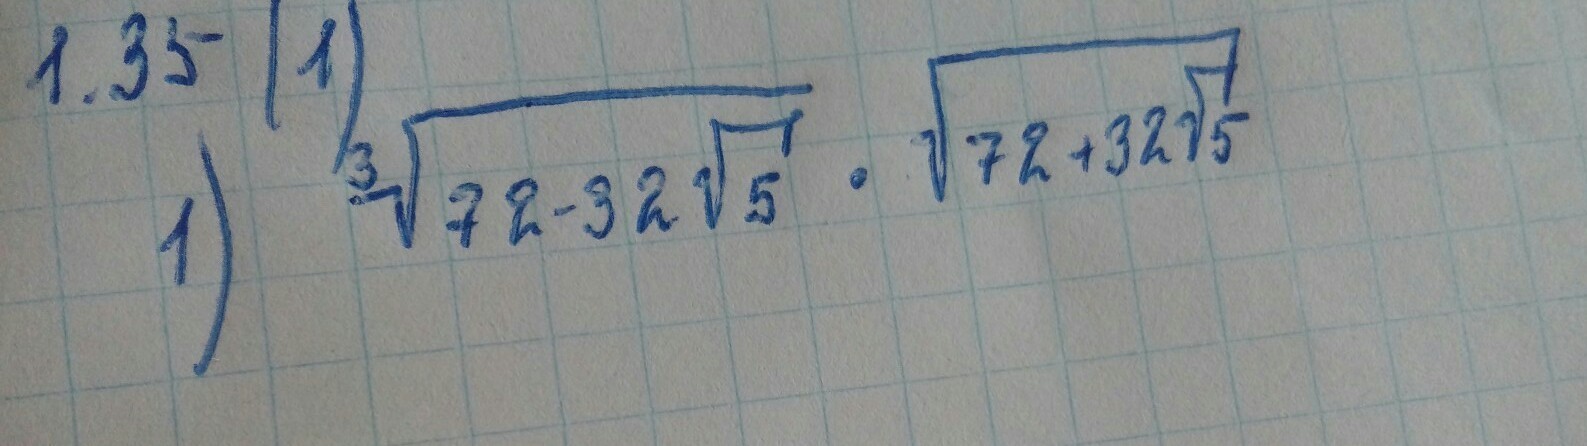 1.35 (1)
1) ∛(72-32√5) · √(72+32√5)